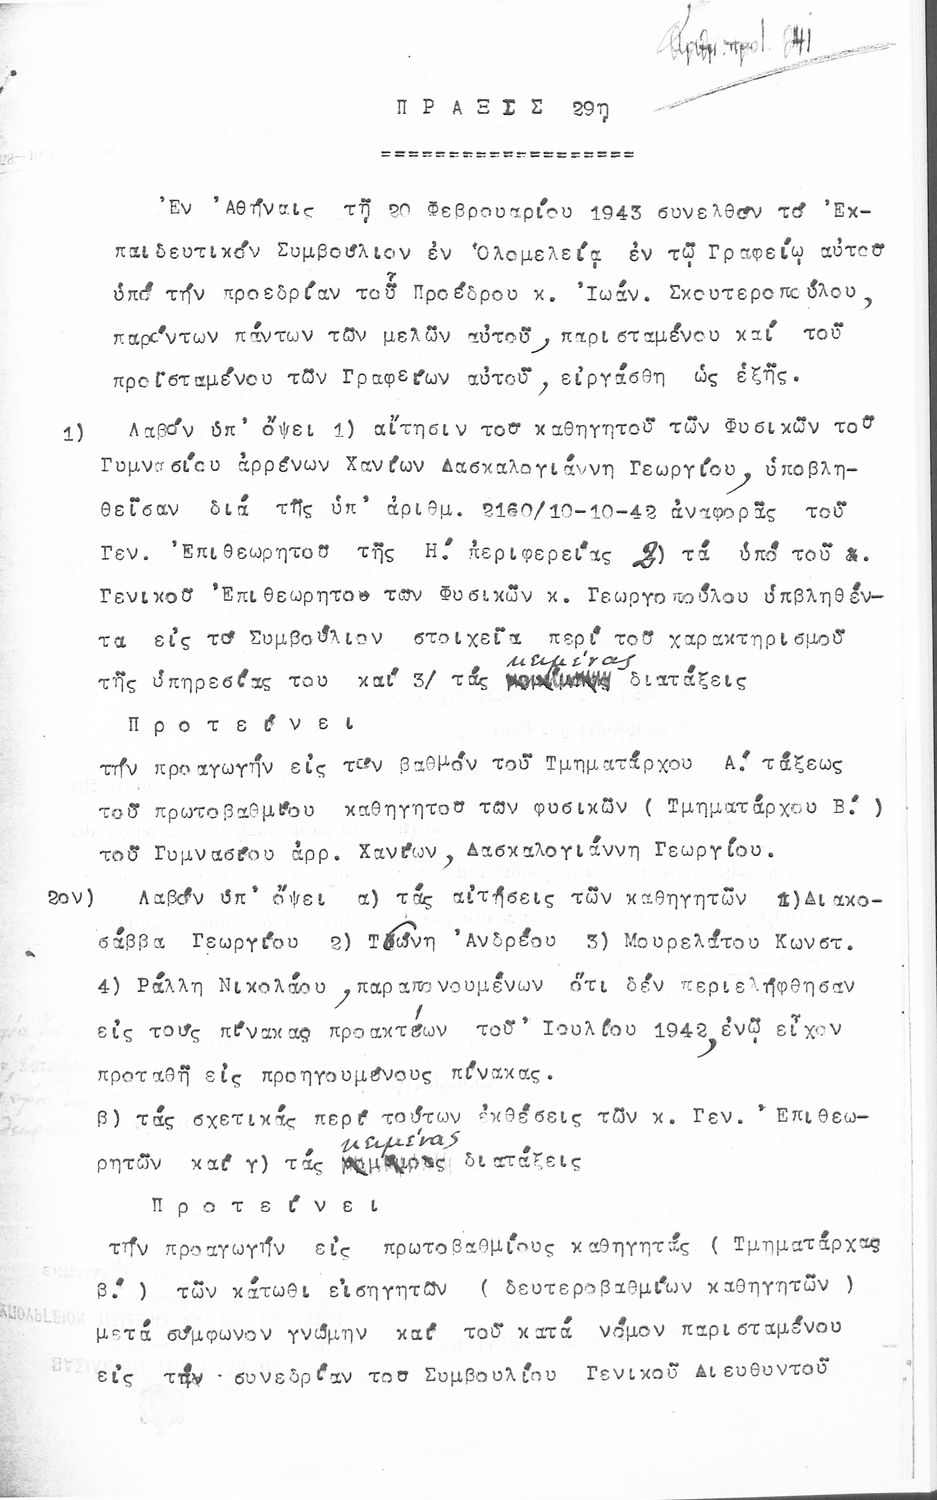 Ἀριθμ. πρωτ. 841
Π Ρ Α Ξ Ι Σ 29η
===================
Ἐν Ἀθήναις τῇ 20 Φεβρουαρίου 1943 συνελθόν τό Ἐκ-
παιδευτικόν Συμβούλιον ἐν Ὁλομελείᾳ ἐν τῷ Γραφείῳ αὐτοῦ
ὑπό τήν προεδρίαν τοῦ Προέδρου κ. Ἰωάν. Σκουτεροπούλου,
παρόντων πάντων τῶν μελῶν αὐτοῦ, παρισταμένου καί τοῦ
προϊσταμένου τῶν Γραφείων αὐτοῦ, εἰργάσθη ὡς ἑξῆς.
1) Λαβόν ὑπ' ὄψει 1) αἴτησιν τοῦ καθηγητοῦ τῶν Φυσικῶν τοῦ
Γυμνασίου ἀρρένων Χανίων Δασκαλογιάννη Γεωργίου, ὑποβλη-
θεῖσαν διά τῆς ὑπ' ἀριθμ. 2160/10-10-42 ἀναφορᾶς τοῦ
Γεν. Ἐπιθεωρητοῦ τῆς Η΄ περιφερείας 2) τά ὑπό τοῦ κ.
Γενικοῦ Ἐπιθεωρητοῦ τῶν Φυσικῶν κ. Γεωργοπούλου ὑπβληθέν-
τα εἰς τό Συμβούλιον στοιχεῖα περί τοῦ χαρακτηρισμοῦ
τῆς ὑπηρεσίας του καί 3/ τάς κειμένας διατάξεις
Π ρ ο τ ε ί ν ε ι
τήν προαγωγήν εἰς τόν βαθμόν τοῦ Τμηματάρχου Α΄ τάξεως
τοῦ πρωτοβαθμίου καθηγητοῦ τῶν φυσικῶν ( Τμηματάρχου Β΄ )
τοῦ Γυμνασίου ἀρρ. Χανίων, Δασκαλογιάννη Γεωργίου.
2ον) Λαβόν ὑπ' ὄψει α) τάς αἰτήσεις τῶν καθηγητῶν 1)Διακο-
σάββα Γεωργίου 2) Τσώνη Ἀνδρέου 3) Μουρελάτου Κωνστ.
4) Ράλλη Νικολάου, παραπονουμένων ὅτι δέν περιελήφθησαν
εἰς τούς πίνακας προακτέων τοῦ Ἰουλίου 1942, ἐνῷ εἶχον
προταθῆ εἰς προηγουμένους πίνακας.
β) τάς σχετικάς περί τούτων ἐκθέσεις τῶν κ. Γεν. Ἐπιθεω-
ρητῶν καί γ) τάς κειμένας διατάξεις
Π ρ ο τ ε ί ν ε ι
τήν προαγωγήν εἰς πρωτοβαθμίους καθηγητάς ( Τμηματάρχας
Β΄ ) τῶν κάτωθι εἰσηγητῶν ( δευτεροβαθμίων καθηγητῶν )
μετά σύμφωνον γνώμην καί τοῦ κατά νόμον παρισταμένου
εἰς τήν συνεδρίαν τοῦ Συμβουλίου Γενικοῦ Διευθυντοῦ